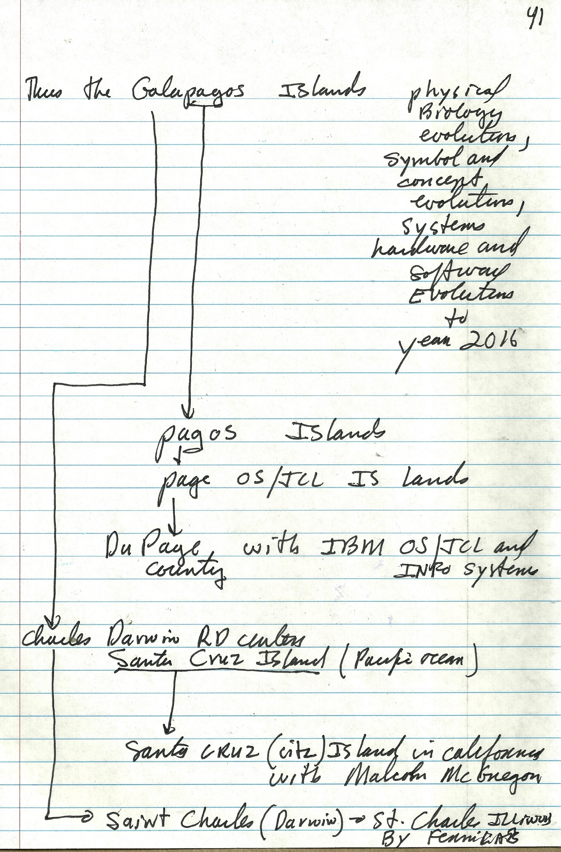 41
Thus the Galapagos Islands physical
Biology
evolution,
symbol and
concept
evolution,
systems
hardware and
software
Evolution
to
year 2016
pagos Islands
page OS/JCL IS lands
DuPage with IBM OS/JCL and
county INFO Systems
Charles Darwin RD centers
Santa Cruz Island (Pacific ocean)
Santa CRUZ (city) Island in california
with Malcolm McGregor
Saint Charles (Darwin) → St. Charles Illinois
By